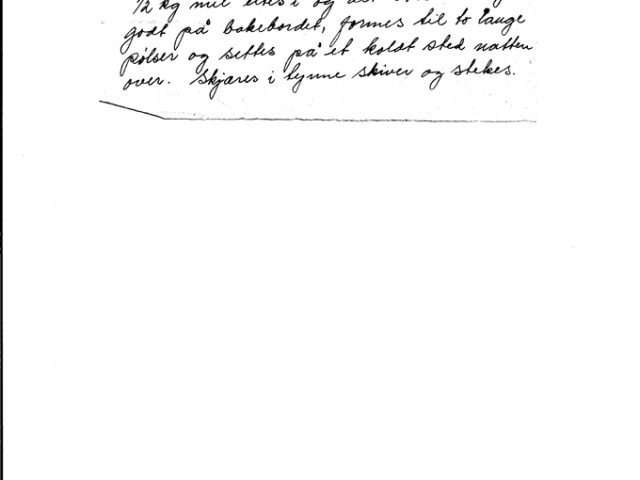 1/2 kg mel eltes i og
godt på bakebordet, formes til to lange
pølser og settes på et koldt sted natten
over. Skjæres i tynne skiver og stekes.